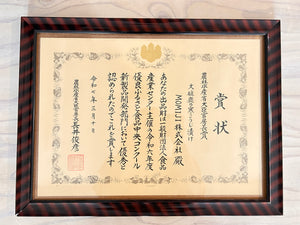 賞状
農林水産省大臣官房長賞
大根農家の寒こうじ漬け
MOMIJI株式会社 殿
あなたの出品財は一般財団法人食品
産業センター主催の令和六年度
優良ふるさと食品中央コンクール
新製品開発部門において優秀と
認められたのでこれを賞します
令和七年三月十日
農林水産省大臣官房長 長井俊彦